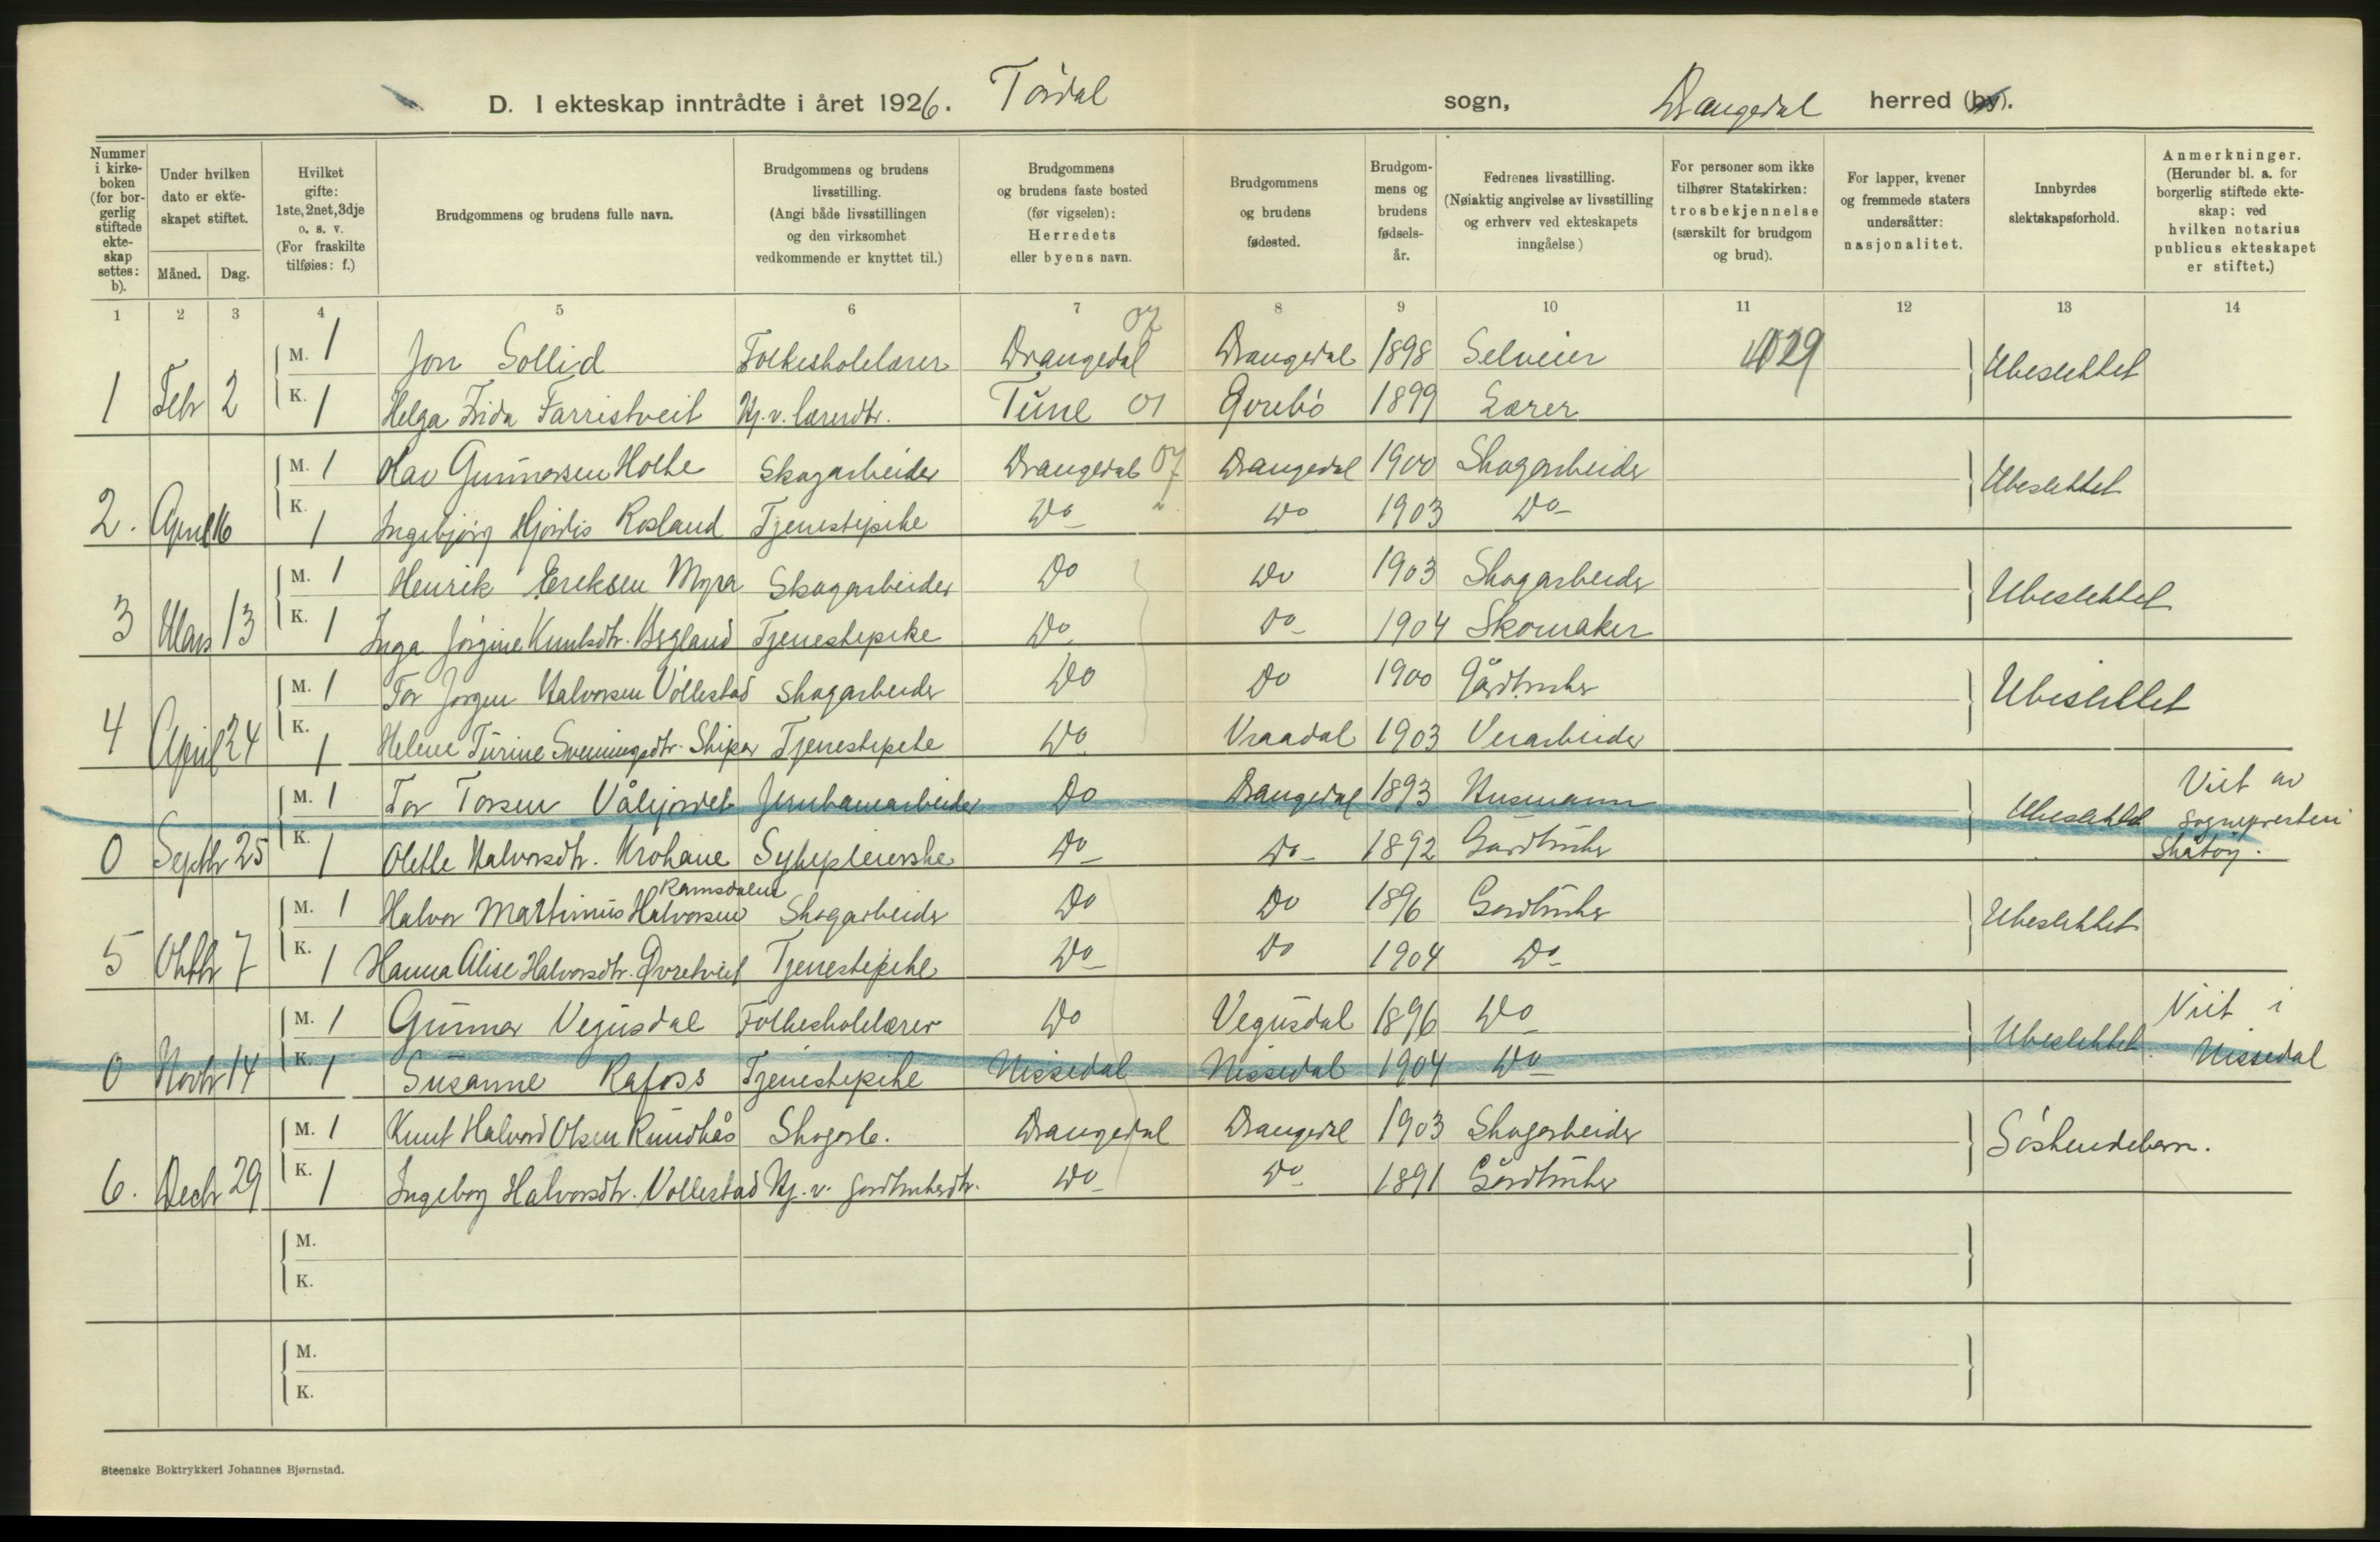 D. I ekteskap inntrådte i året 1926. Tørdal sogn, Drangedal herred (by).
Nummer i kirke-boken (for bor-gerlig stiftede ekte-skap settes: b).
Under hvilken dato er ekte-skapet stiftet.
Måned. Dag.
Hvilket gifte: 1ste, 2net, 3dje o. s. v. (For fraskilte tilføies: f.)
Brudgommens og brudens fulle navn.
Brudgommens og brudens livsstilling. (Angi både livsstillingen og den virksomhet vedkommende er knyttet til.)
Brudgommens og brudens faste bosted (før vigselen): Herredets eller byens navn.
Brudgommens og brudens fødested.
Brudgom-mens og brudens fødsels-år.
Fedrenes livsstilling. (Nøiaktig angivelse av livsstilling og erhverv ved ekteskapets inngåelse.)
For personer som ikke tilhører Statskirken: trosbekjennelse (særskilt for brudgom og brud).
For lapper, kvener og fremmede staters undersåtter: nasjonalitet.
Innbyrdes slektskapsforhold.
Anmerkninger. (Herunder bl. a. for borgerlig stiftede ekte-skap: ved hvilken notarius publicus ekteskapet er stiftet.)
1 2 3 4 5 6 7 8 9 10 11 12 13 14
07
M. 1 Jon Sollid Folkeskolelærer Drangedal Drangedal 1898 Selveier 1029 Ubeslektet
1 Febr 2 K. 1 Helga Frida Farristveit Hj. v. lærerdtr. Tune 01 1899 Lærer
M. 1 Olav Gunnarsen Holte Skogarbeider Drangedal 07 Drangedal 1900 Skogarbeider Ubeslektet
2. April 16 K. 1 Ingebjørg Hjørdis Rosland Tjenestepike Do Do 1903 Do
M. 1 Henrik Eriksen Myra Skogarbeider Do Do 1903 Skogarbeider Ubeslektet
3 Mars 13 K. 1 Inga Jørgine Knutsdtr. Tjenestepike Do Do 1904 Skomaker
M. 1 Tor Jørgen Halvorsen Vollestad Skogarbeider Do Do 1900 Gårdbruker Ubeslektet
4 April 24 K. 1 Helene Turine Sveinungsdtr. Tjenestepike Do Vraadal 1903 Veiarbeider
M. 1 Tor Torsen Jernbanearbeider Do Drangedal 1893 Husmann Ubeslektet Viet av
sognepresten i
0 Septbr 25 K. 1 Olette Halvorsdtr. Krohane Sykepleierske Do Do 1892 Gårdbruker Skåtøy.
Ramsdalen
M. 1 Halvor Martinius Halvorsen Skogarbeider Do Do 1896 Gårdbruker Ubeslektet
5 Oktbr 7 K. 1 Hanna Alise Halvorsdtr. Øvretveit Tjenestepike Do Do 1904 Do
M. 1 Gunnar Vegusdal Folkeskolelærer Do Vegusdal 1896 Do Ubeslektet Viet i
0 Novbr 14 K. 1 Susanne Rafoss Tjenestepike Nissedal Nissedal 1904 Do Nissedal
M. 1 Knut Halvard Olsen Rundhås Skogarb. Drangedal Drangedal 1903 Skogarbeider Søskendebarn.
6. Decbr 29 K. 1 Ingeborg Halvorsdtr. Vollestad Hj. v. gårdbrukerdtr. Do Do 1891 Gårdbruker
M.
K.
M.
K.
Steenske Boktrykkeri Johannes Bjørnstad.